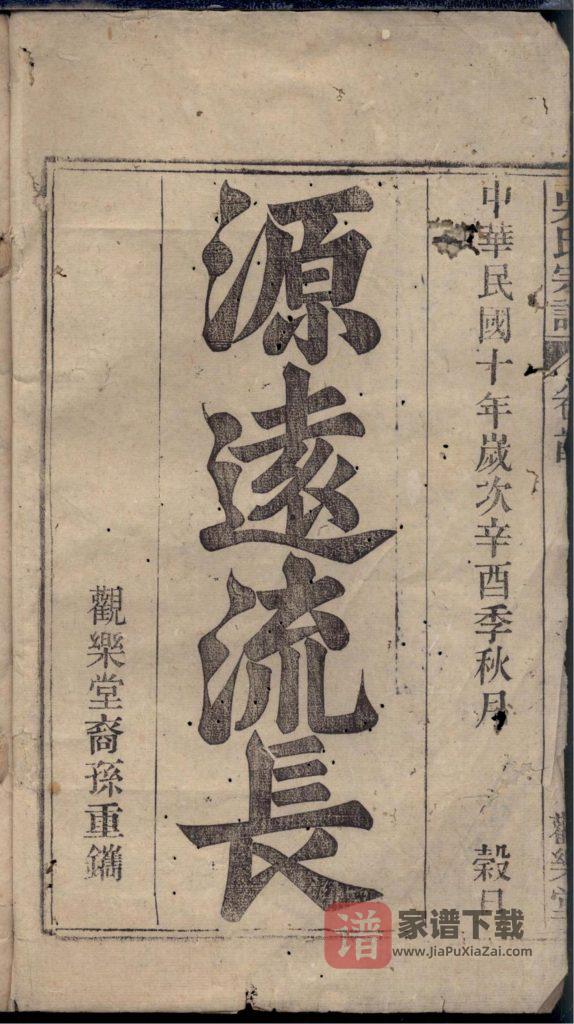 吳氏宗譜
卷首
觀樂堂
中華民國十年歲次辛酉季秋月 穀旦
源遠流長
觀樂堂裔孫重鐫
谱 家谱下载
www.JiaPuXiaZai.com